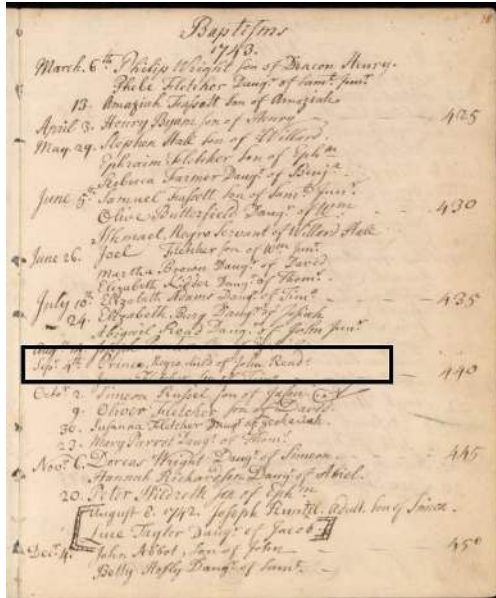 Baptisms
1743.
March. 6th Philip Wright Son of Deacon Henry.
Phebe Fletcher Daugr. of Samll. Junr.
13. Amaziah Fassett Son of Amaziah
April 3. Henry Byam son of Henry 425
May. 29. Stephen Hall son of Willard.
Ephraim Fletcher son of Ephm
Rebecca Farmer Daugr. of Benja.
June 5th Samuel Fassett Son of Samll. Junr.
Olive Butterfield Daugr. of Wm 430
Ishmael, Negro Servant of Willard Hall
June 26. Joel Fletcher son of Wm Junr.
Martha Brown Daugr. of David
Elizabeth Kidder Daugr. of Thoms.
July 10th. Elizabeth Adams Daugr. of Timo. 435
24. Elizabeth Daugr. of Josiah
Abigail Read Daugr. of John Junr
Augt. 14 Joseph
Sept. 4th Prince, Negro child of John Read.
440
Octor 2. Simeon Russel son of Jason
9. Oliver Fletcher son of David.
30. Susanna Fletcher Daugr. of Zechariah.
23. Mary Parrot Daugr. of Thoms.
Novr. 6. Dorcas Wright Daugr. of Simeon. 445
Hannah Richardson Daugr. of Abiel.
20. Peter son of Ephm
August 8. 1742. Joseph adult. Son of
Taylor Daugr. of Jacob.
Decr. 4. John Abbot, Son of John 450
Betty Daugr. of Samll.